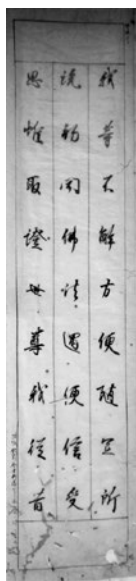 我等不解方便随宜所
说初闻佛法遇便信受
思惟取證世尊我従首